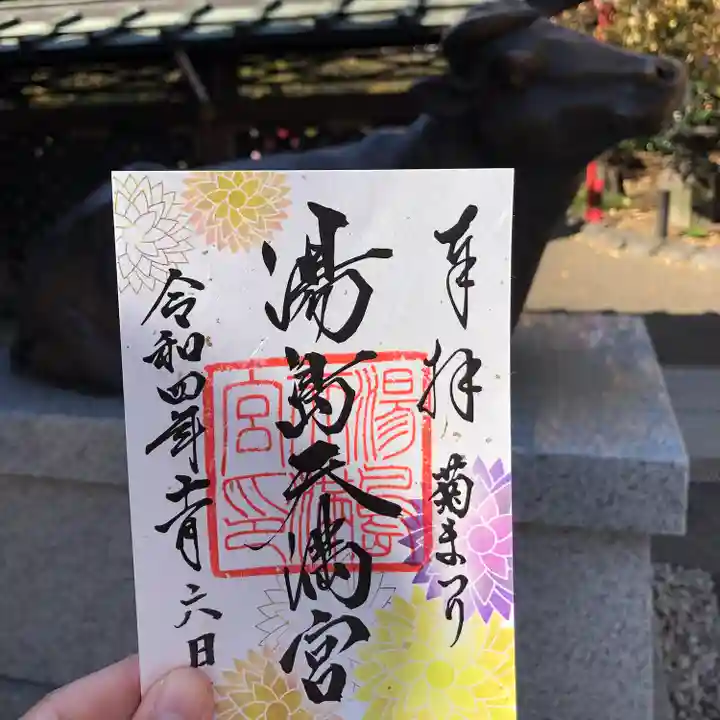 奉拝
菊まつり
湯島天満宮
湯島天満宮印
令和四年十一月六日